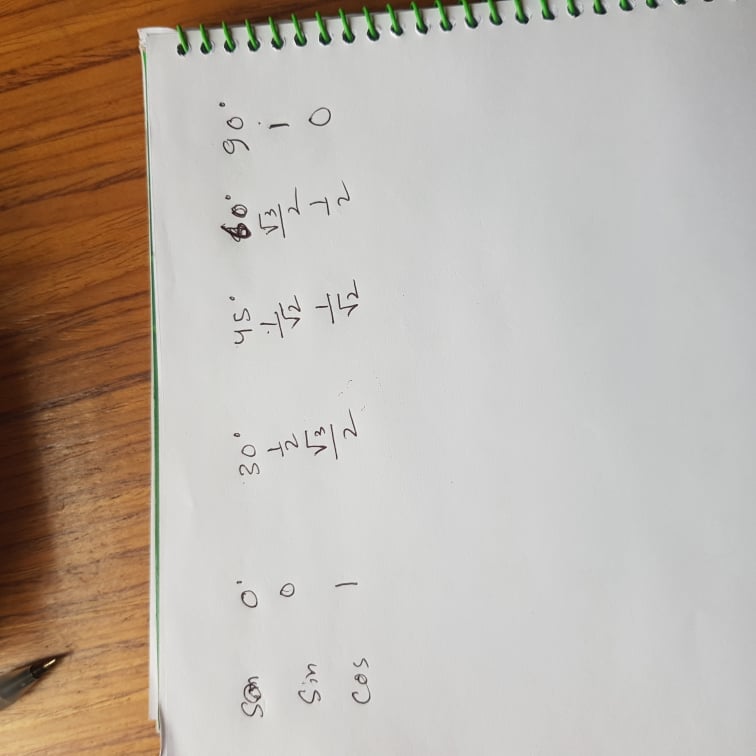 0° 30° 45° 60° 90°
Sin 0 1/2 1/√2 √3/2 1
Cos 1 √3/2 1/√2 1/2 0